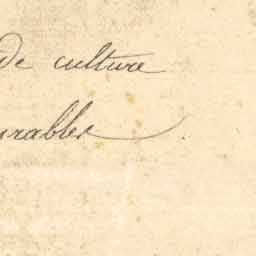 de culture
urables.